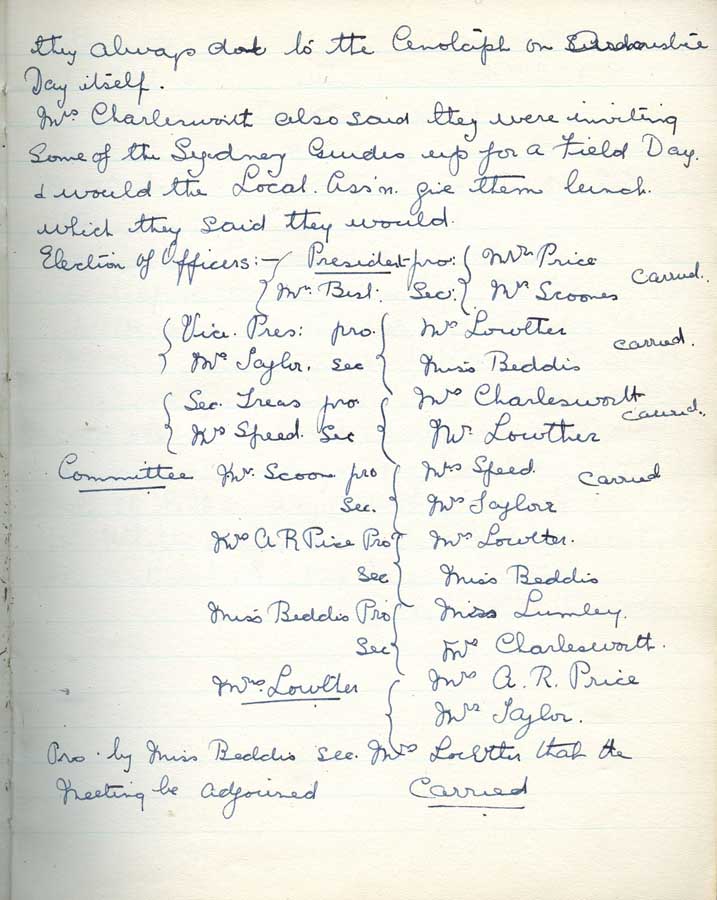 they always do to the Cenotaph on
Day itself.
Mrs Charlesworth also said they were inviting
some of the Sydney Guides up for a Field Day.
& would the Local. Ass'n. give them lunch.
which they said they would.
Election of Officers:- President pro: Mrs Price
Mrs Best: Sec: Mrs Scoones carried.
Vice. Pres: pro. Mrs Lowther
Mrs Taylor. sec Miss Beddis carried.
Sec. Treas pro Mrs Charlesworth
Mrs Speed. Sec Mrs Lowther carried.
Committee Mrs. Scoon pro Mrs Speed. carried
Sec. Mrs Taylor
Mrs A R Price Pro Mrs Lowther.
Sec Miss Beddis
Miss Beddis Pro Miss Lumley.
Sec Mrs Charlesworth.
Mrs. Lowther Mrs A. R. Price
Mrs Taylor.
Pro. by Miss Beddis sec. Mrs Lowther that the
Meeting be adjourned Carried